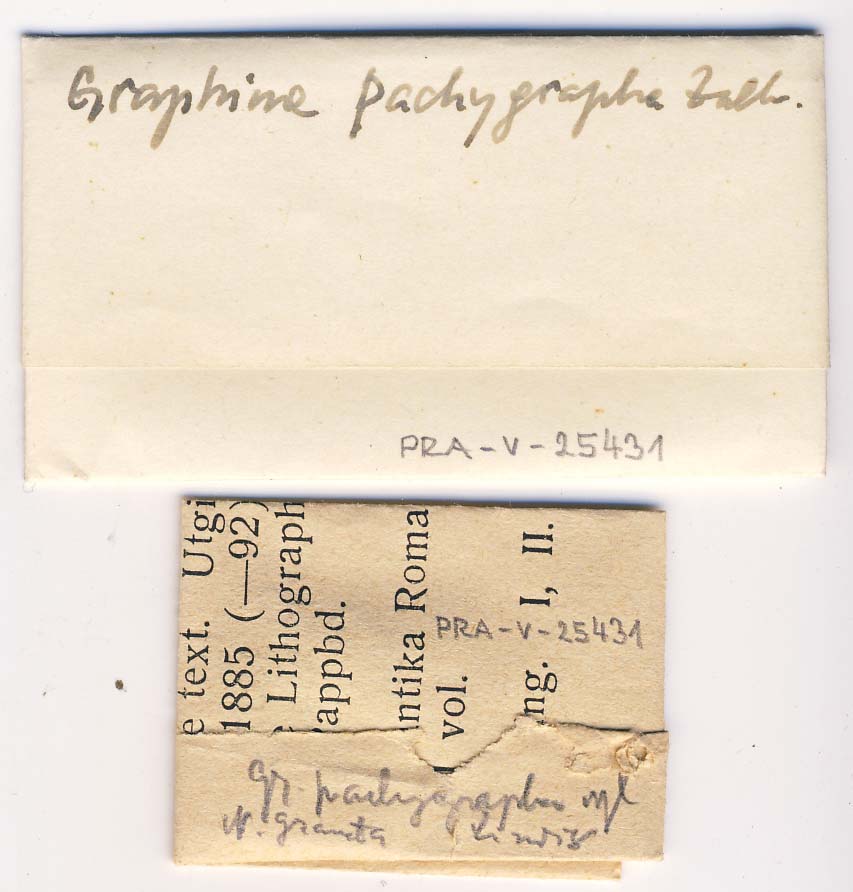 Graphina pachygrapha Zalh.
PRA-V-25431
e text. Utgi
1885 (—92)
Lithograph
appbd.
ntika Roma
vol.
ng. I, II.
PRA-V-25431
Gr. pachygrapha Nyl
N. Granata Lindig